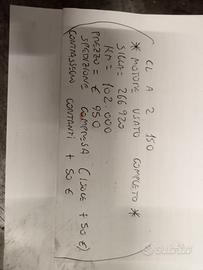 CL A 2 150
* MOTORE USATO COMPLETO *
SIGLA = 266920
KM = 102.000
PREZZO = € 950
SPEDIZIONE COMPRESA (ISOLE + 50 €)
CONTRASSEGNO CONTANTI + 50 €
subito